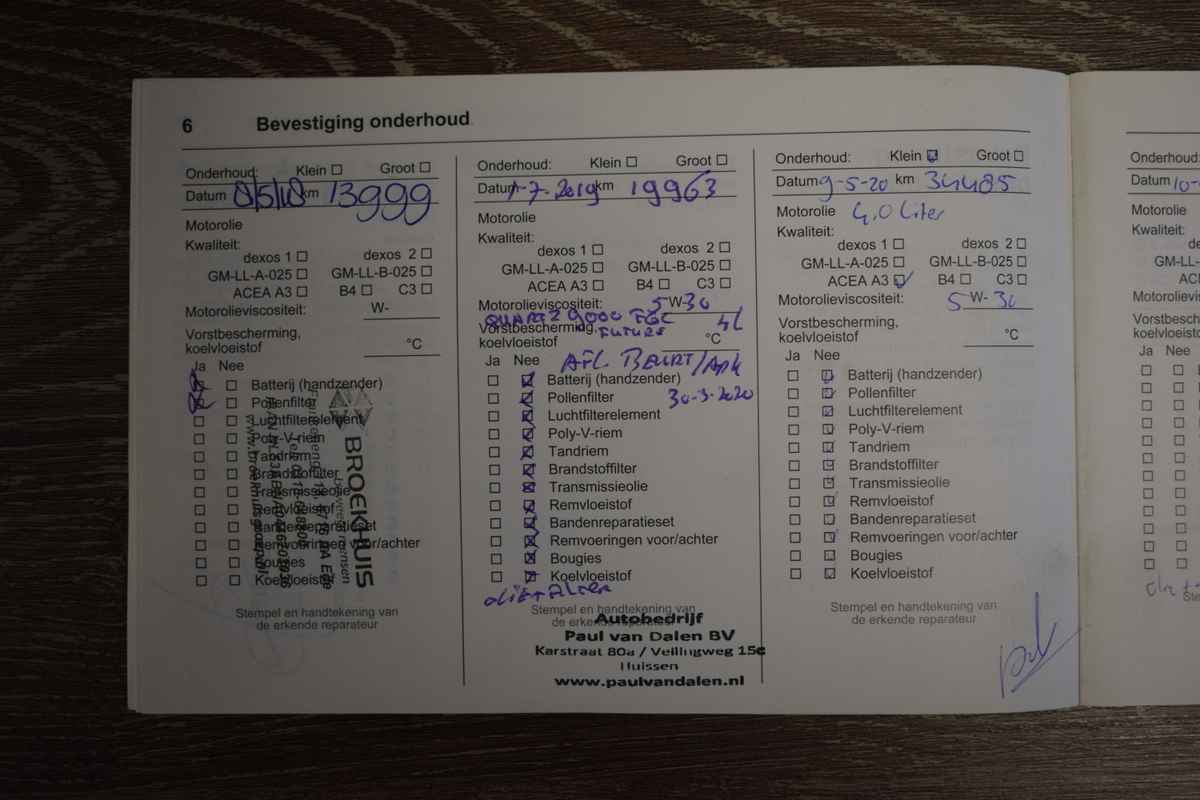 6 Bevestiging onderhoud
Onderhoud: Klein ☐ Groot ☐
Datum 8/5/18 km 13999
Motorolie
Kwaliteit:
dexos 1 ☐ dexos 2 ☐
GM-LL-A-025 ☐ GM-LL-B-025 ☐
ACEA A3 ☐ B4 ☐ C3 ☐
Motorolieviscositeit: W-
Vorstbescherming,
koelvloeistof °C
Ja Nee
Batterij (handzender)
Pollenfilter
Luchtfilterelement
Poly-V-riem
Tandriem
Brandstoffilter
Transmissieolie
Remvloeistof
Bandenreparatieset
Remvoeringen voor/achter
Bougies
Koelvloeistof
BROEKHUIS
Stempel en handtekening van
de erkende reparateur
Onderhoud: Klein ☐ Groot ☐
Datum 1-7-2019 km 19963
Motorolie
Kwaliteit:
dexos 1 ☐ dexos 2 ☐
GM-LL-A-025 ☐ GM-LL-B-025 ☐
ACEA A3 ☐ B4 ☐ C3 ☐
Motorolieviscositeit: 5 W-30
QUARTZ 9000 FUTURE 4L
Vorstbescherming,
koelvloeistof °C
AFL BEURT/APK
Ja Nee
Batterij (handzender)
Pollenfilter 30-3-2020
Luchtfilterelement
Poly-V-riem
Tandriem
Brandstoffilter
Transmissieolie
Remvloeistof
Bandenreparatieset
Remvoeringen voor/achter
Bougies
Koelvloeistof
olie+filter
Stempel en handtekening van
de erkende reparateur
Autobedrijf
Paul van Dalen BV
Karstraat 80a / Veilingweg 15c
Huissen
www.paulvandalen.nl
Onderhoud: Klein ☑ Groot ☐
Datum 9-5-20 km 34485
Motorolie 4,0 liter
Kwaliteit:
dexos 1 ☐ dexos 2 ☐
GM-LL-A-025 ☐ GM-LL-B-025 ☐
ACEA A3 ☑ B4 ☐ C3 ☐
Motorolieviscositeit: 5 W- 30
Vorstbescherming,
koelvloeistof °C
Ja Nee
Batterij (handzender)
Pollenfilter
Luchtfilterelement
Poly-V-riem
Tandriem
Brandstoffilter
Transmissieolie
Remvloeistof
Bandenreparatieset
Remvoeringen voor/achter
Bougies
Koelvloeistof
Stempel en handtekening van
de erkende reparateur
Onderhoud:
Datum 10-
Motorolie
Kwaliteit:
GM-LL-
ACE
Motorolieviscos
Vorstbescherm
koelvloeistof
Ja Nee